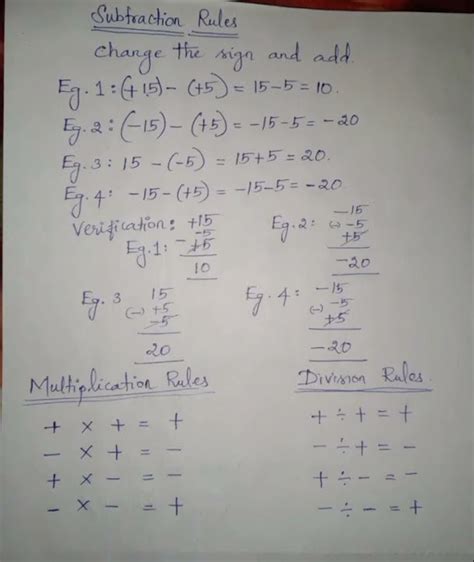 Subtraction Rules
Change the sign and add.
Eg. 1: (+15) - (+5) = 15-5 = 10.
Eg. 2: (-15) - (+5) = -15-5 = -20
Eg. 3: 15 - (-5) = 15+5 = 20.
Eg. 4: -15-(+5) = -15-5 = -20.
Verification:
Eg.1:
+15
-5
- +5
10
Eg.2:
-15
(-) -5
+5
-20
Eg. 3
15
(-) +5
-5
20
Eg. 4:
-15
(-) -5
+5
-20
Multiplication Rules
+ × + = +
- × + = -
+ × - = -
- × - = +
Division Rules.
+ ÷ + = +
- ÷ + = -
+ ÷ - = -
- ÷ - = +